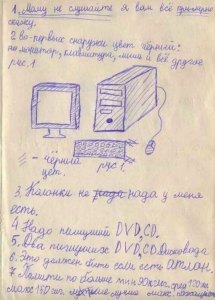 1. Маму не слушайте я вам всё примерно
скажу.
2. во-первых снаружи цвет чёрный:
монитор, клавиатура, мышь и всё другие
рис. 1
- чёрный
цвет.
рис. 1.
3. Колонки не нада у меня
есть.
4. Надо пишущий DVD, CD.
5. Два пишущих DVD, CD дисковода
6. Это должен быть если есть АТЛАН.
7. Памяти по больше
макс 180 гиг.